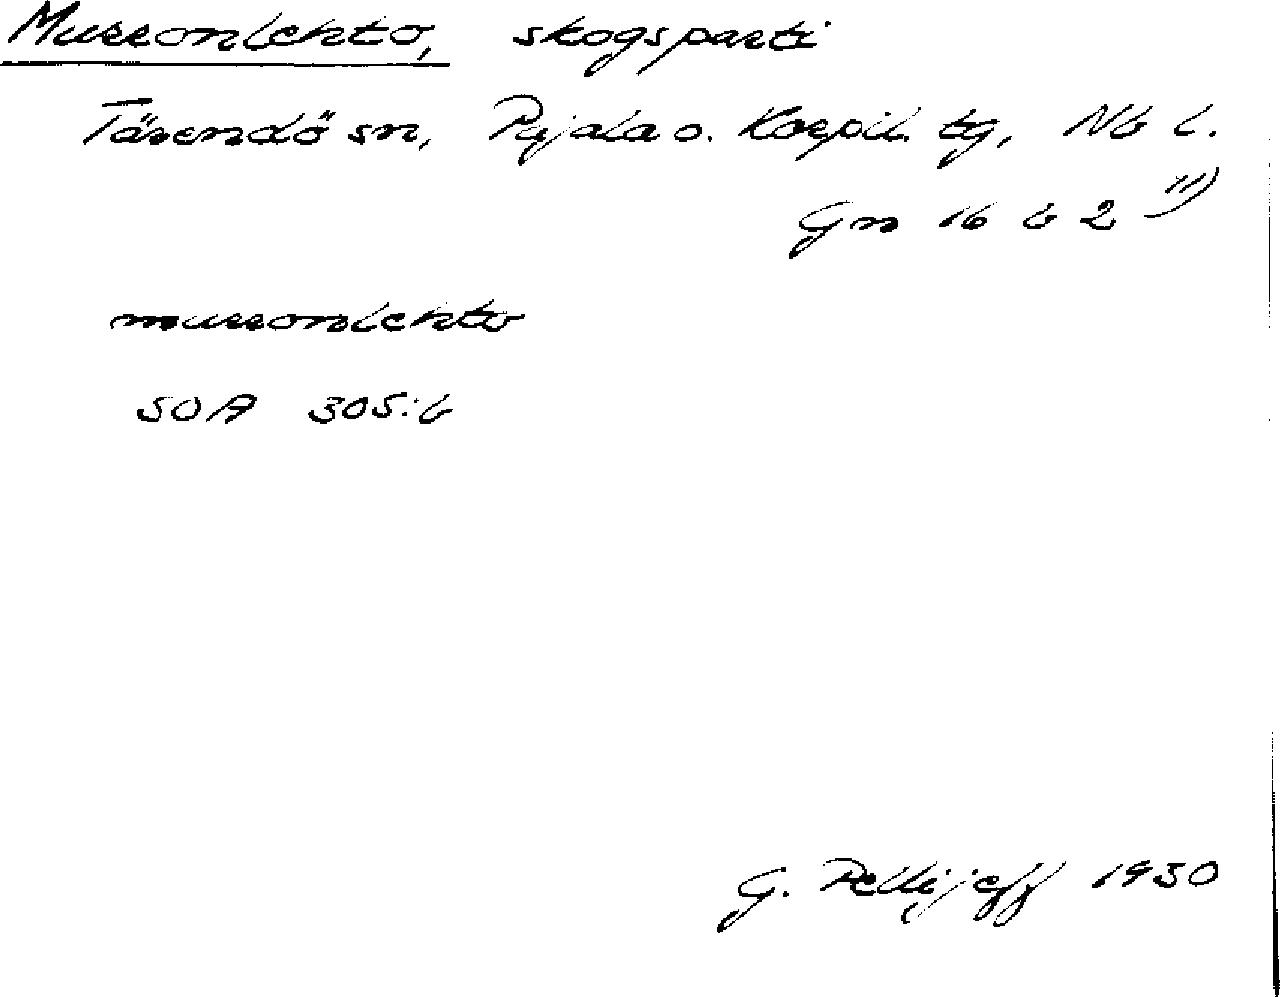 Murronlehto, skogsparti
Tärendö sn, Pajala o. Korpil. tg, Nb l.
Gn 16 b 2 11)
murronlehto
SOA 305:6
G. Pellijeff 1930